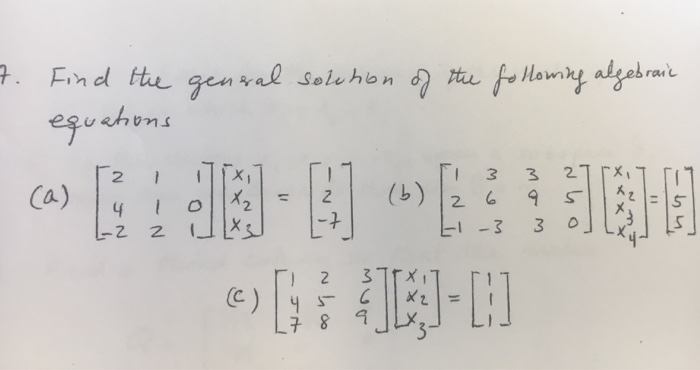 7. Find the general solution of the following algebraic
equations
(a) [2 1 1; 4 1 0; -2 2 1] [x1; x2; x3] = [1; 2; -7] (b) [1 3 3 2; 2 6 9 5; -1 -3 3 0] [x1; x2; x3; x4] = [1; 5; 5]
(c) [1 2 3; 4 5 6; 7 8 9] [x1; x2; x3] = [1; 1; 1]